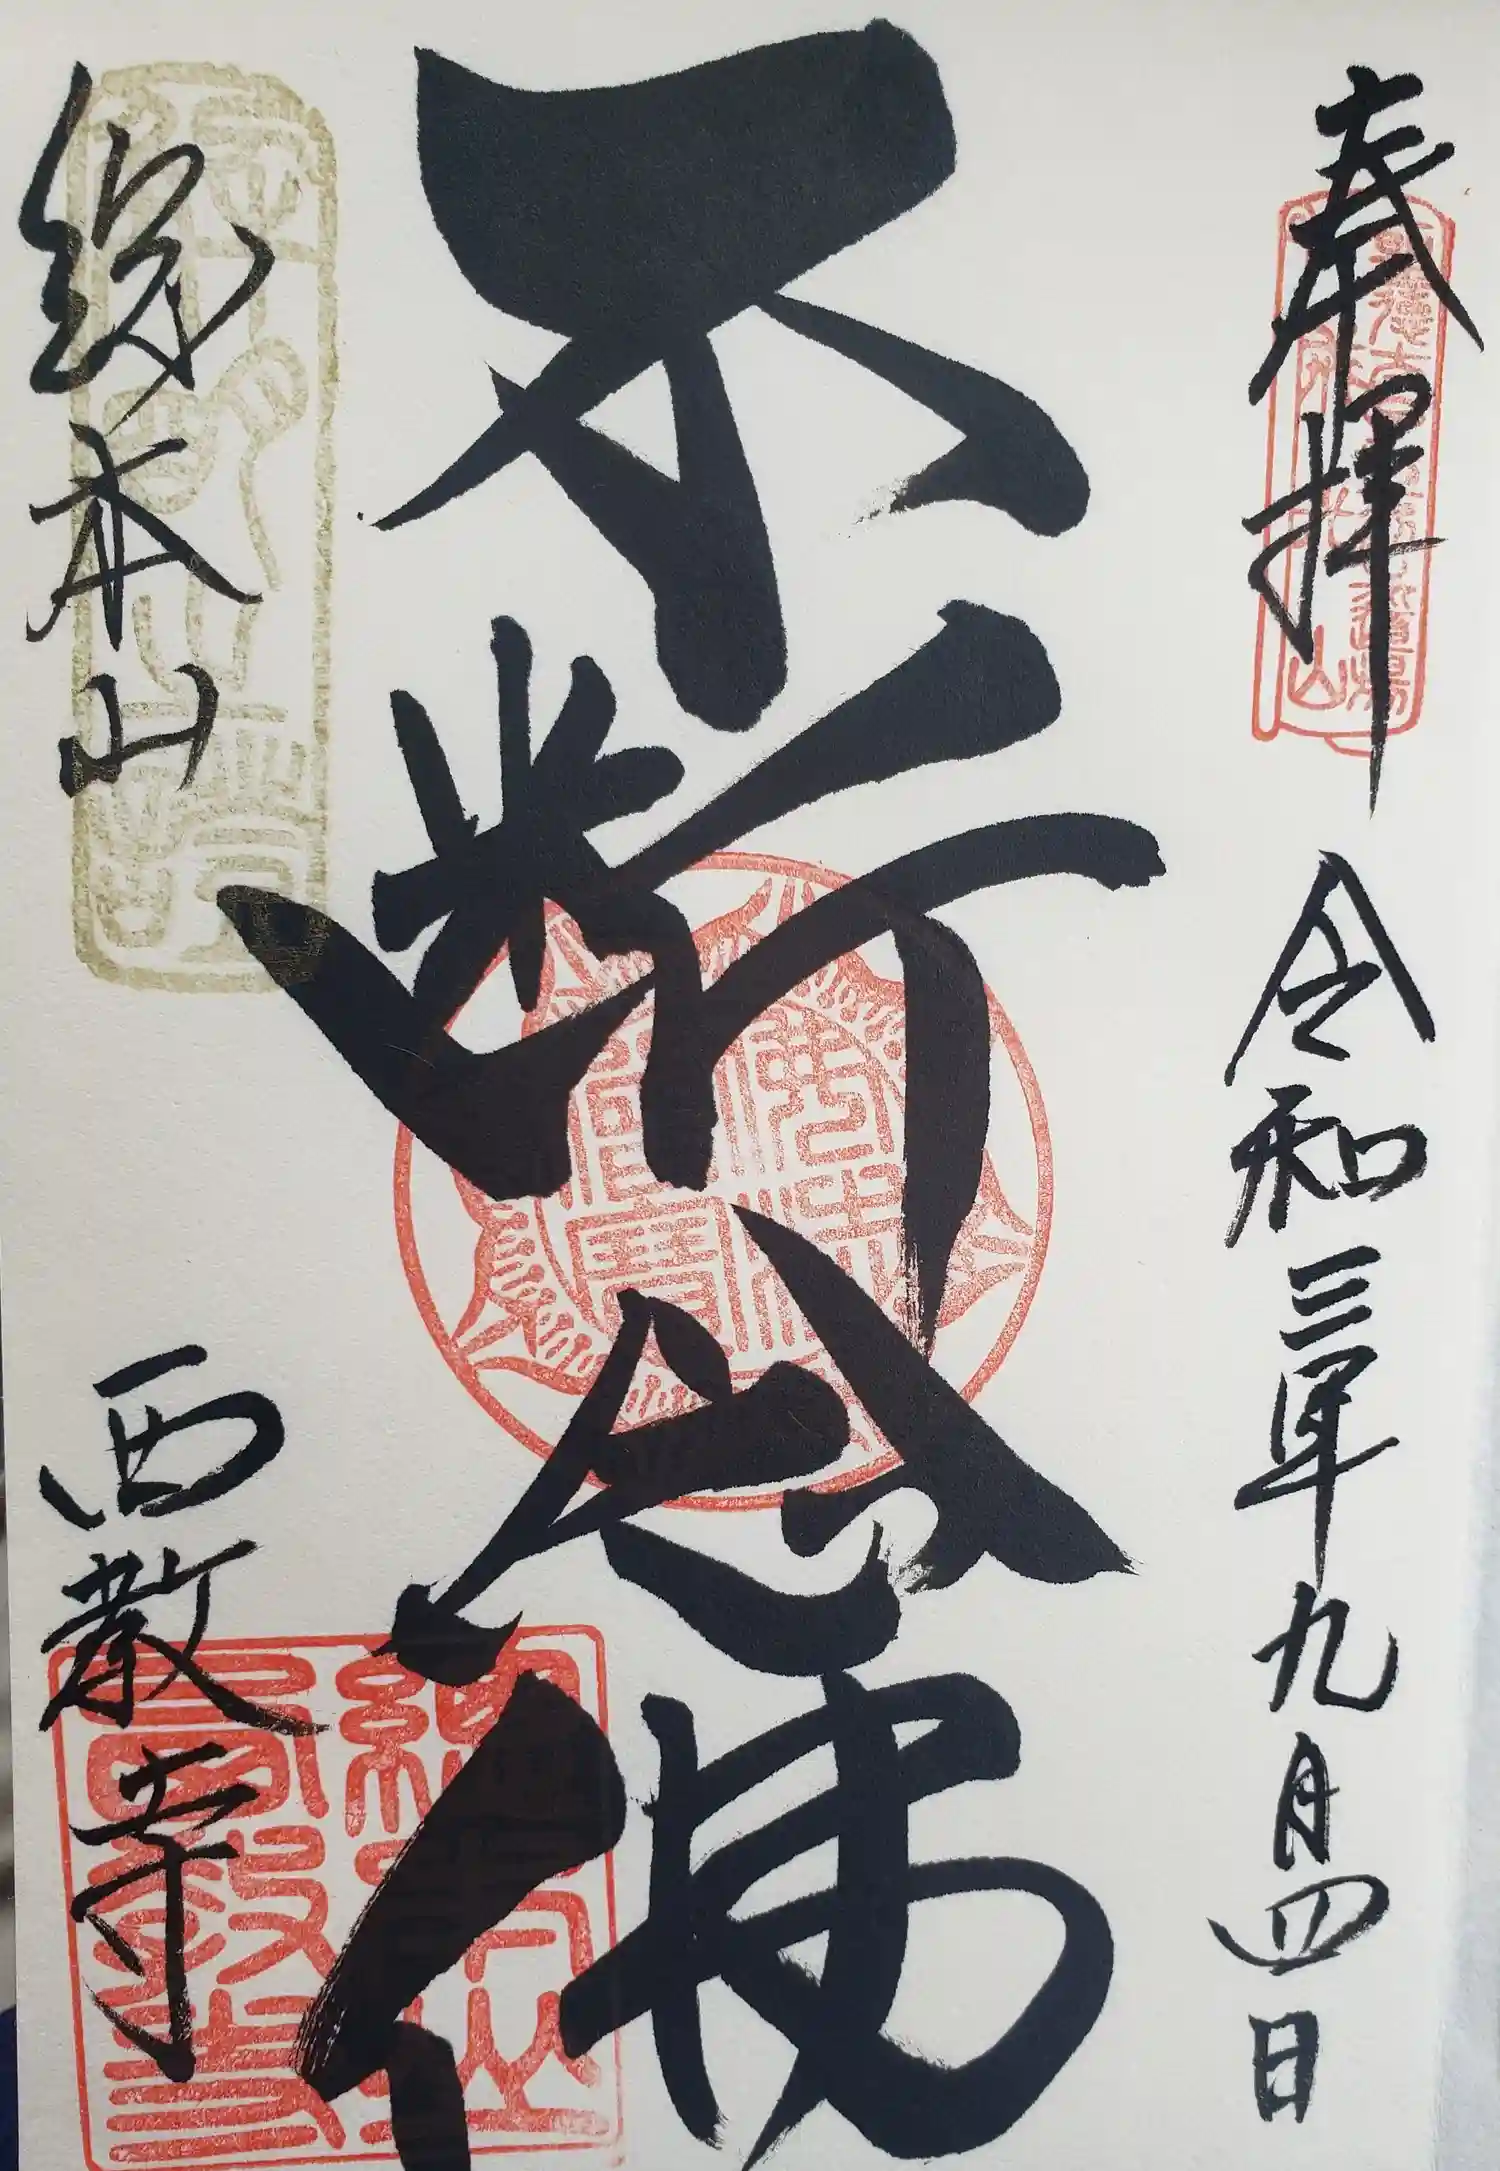 奉拝 令和三年九月四日
不断念佛
総本山 西教寺